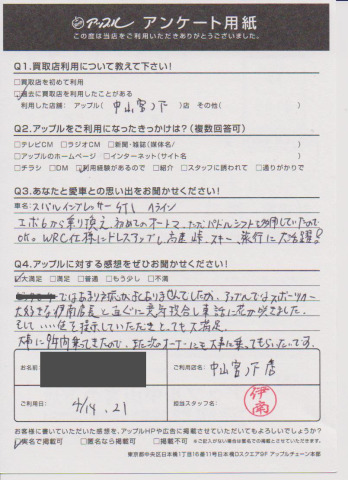 アップル アンケート用紙
この度は当店をご利用いただきありがとうございました。
Q1.買取店利用について教えて下さい!
□買取店を初めて利用
☑過去に買取店を利用したことがある
利用した店舗: アップル( 中山宮ノ下 )店 その他( )
Q2.アップルをご利用になったきっかけは?(複数回答可)
□テレビCM □ラジオCM □新聞・雑誌(媒体名/ )
□アップルのホームページ □インターネット(サイト名 )
□チラシ □DM ☑利用経験があるので □紹介 □スタッフに誘われて □通りがかりで
Q3.あなたと愛車との思い出をお聞かせください!
車名: スバルインプレッサー GT1 Aライン
エボ6から乗り換え、初めてのオートマ、ただパドルシフトで
OK。WRC仕様にドレスアップし、高速、峠、スキー、旅行に大活躍!
Q4.アップルに対する感想をぜひお聞かせください!
☑大満足 □満足 □普通 □もう少し □不満
ではあまり がよくありませんでしたが、アップルではスポーツカー
大好きな伊南店長と 意気投合し車話に花がさきました。
そして いい を提示していただきとっても大満足。
大事に9年間乗ってきたので、また次のオーナーにも大事に乗ってもらいたいです。
お名前:
ご利用店名: 中山宮ノ下店
ご利用日: 4/14.21
担当スタッフ名: 伊南
お客様に書いていただいた感想を、アップルHPや広告に掲載させていただいてもよろしいでしょうか?
☑実名で掲載可 □匿名なら掲載可 □掲載不可 ※ご記入がない場合は匿名での掲載とさせていただきます。
東京都中央区日本橋1丁目16番11号日本橋Dスクエア9F アップルチェーン本部